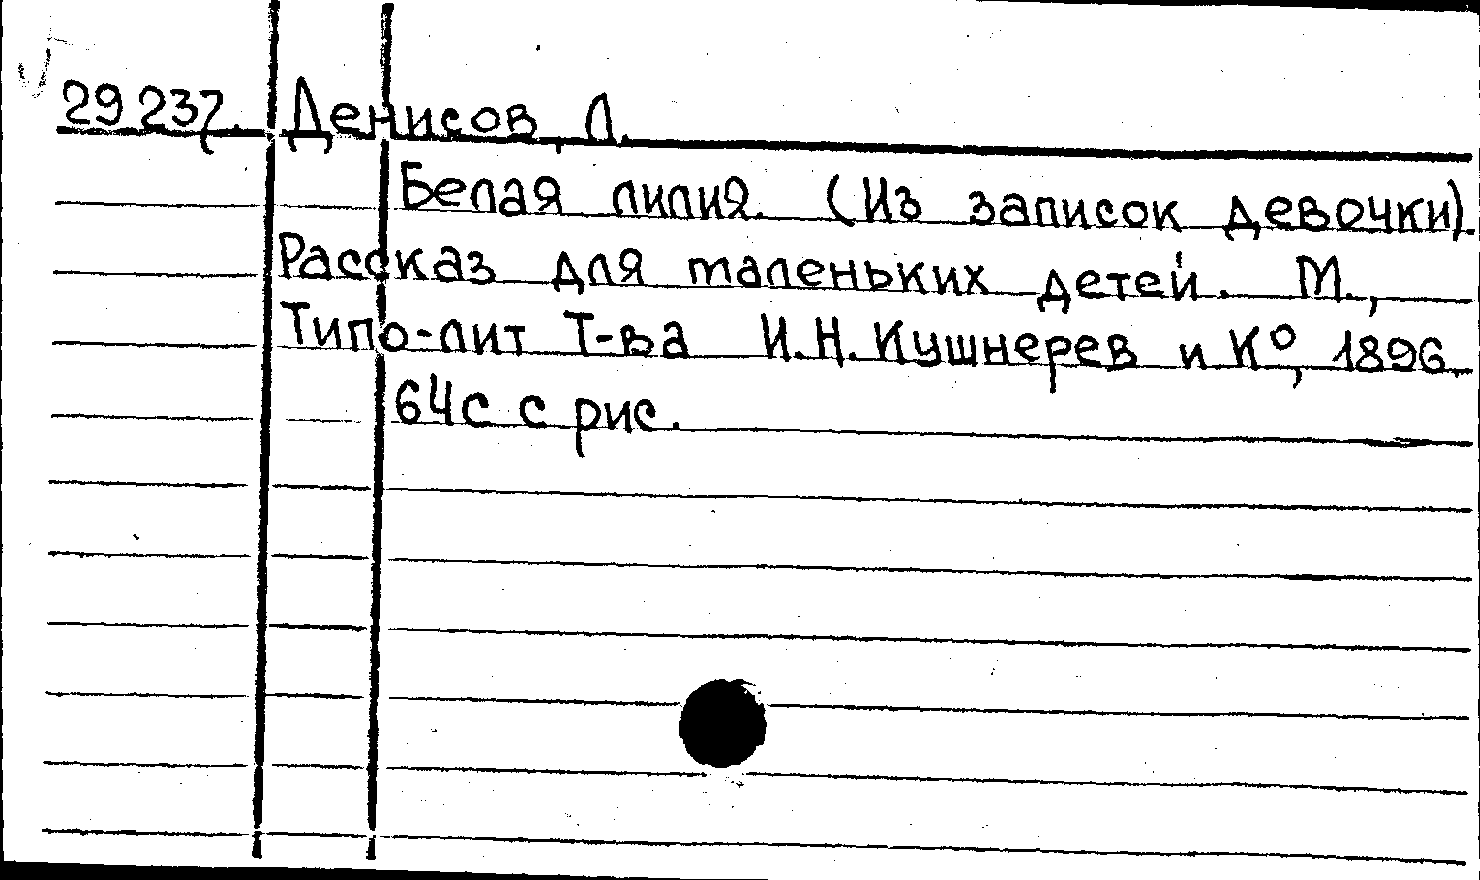 29237. Денисов, Л.
Белая лилия. (Из записок девочки).
Рассказ для маленьких детей. М.,
Типо-лит Т-ва И.Н. Кушнерев и К°, 1896.
64с с рис.